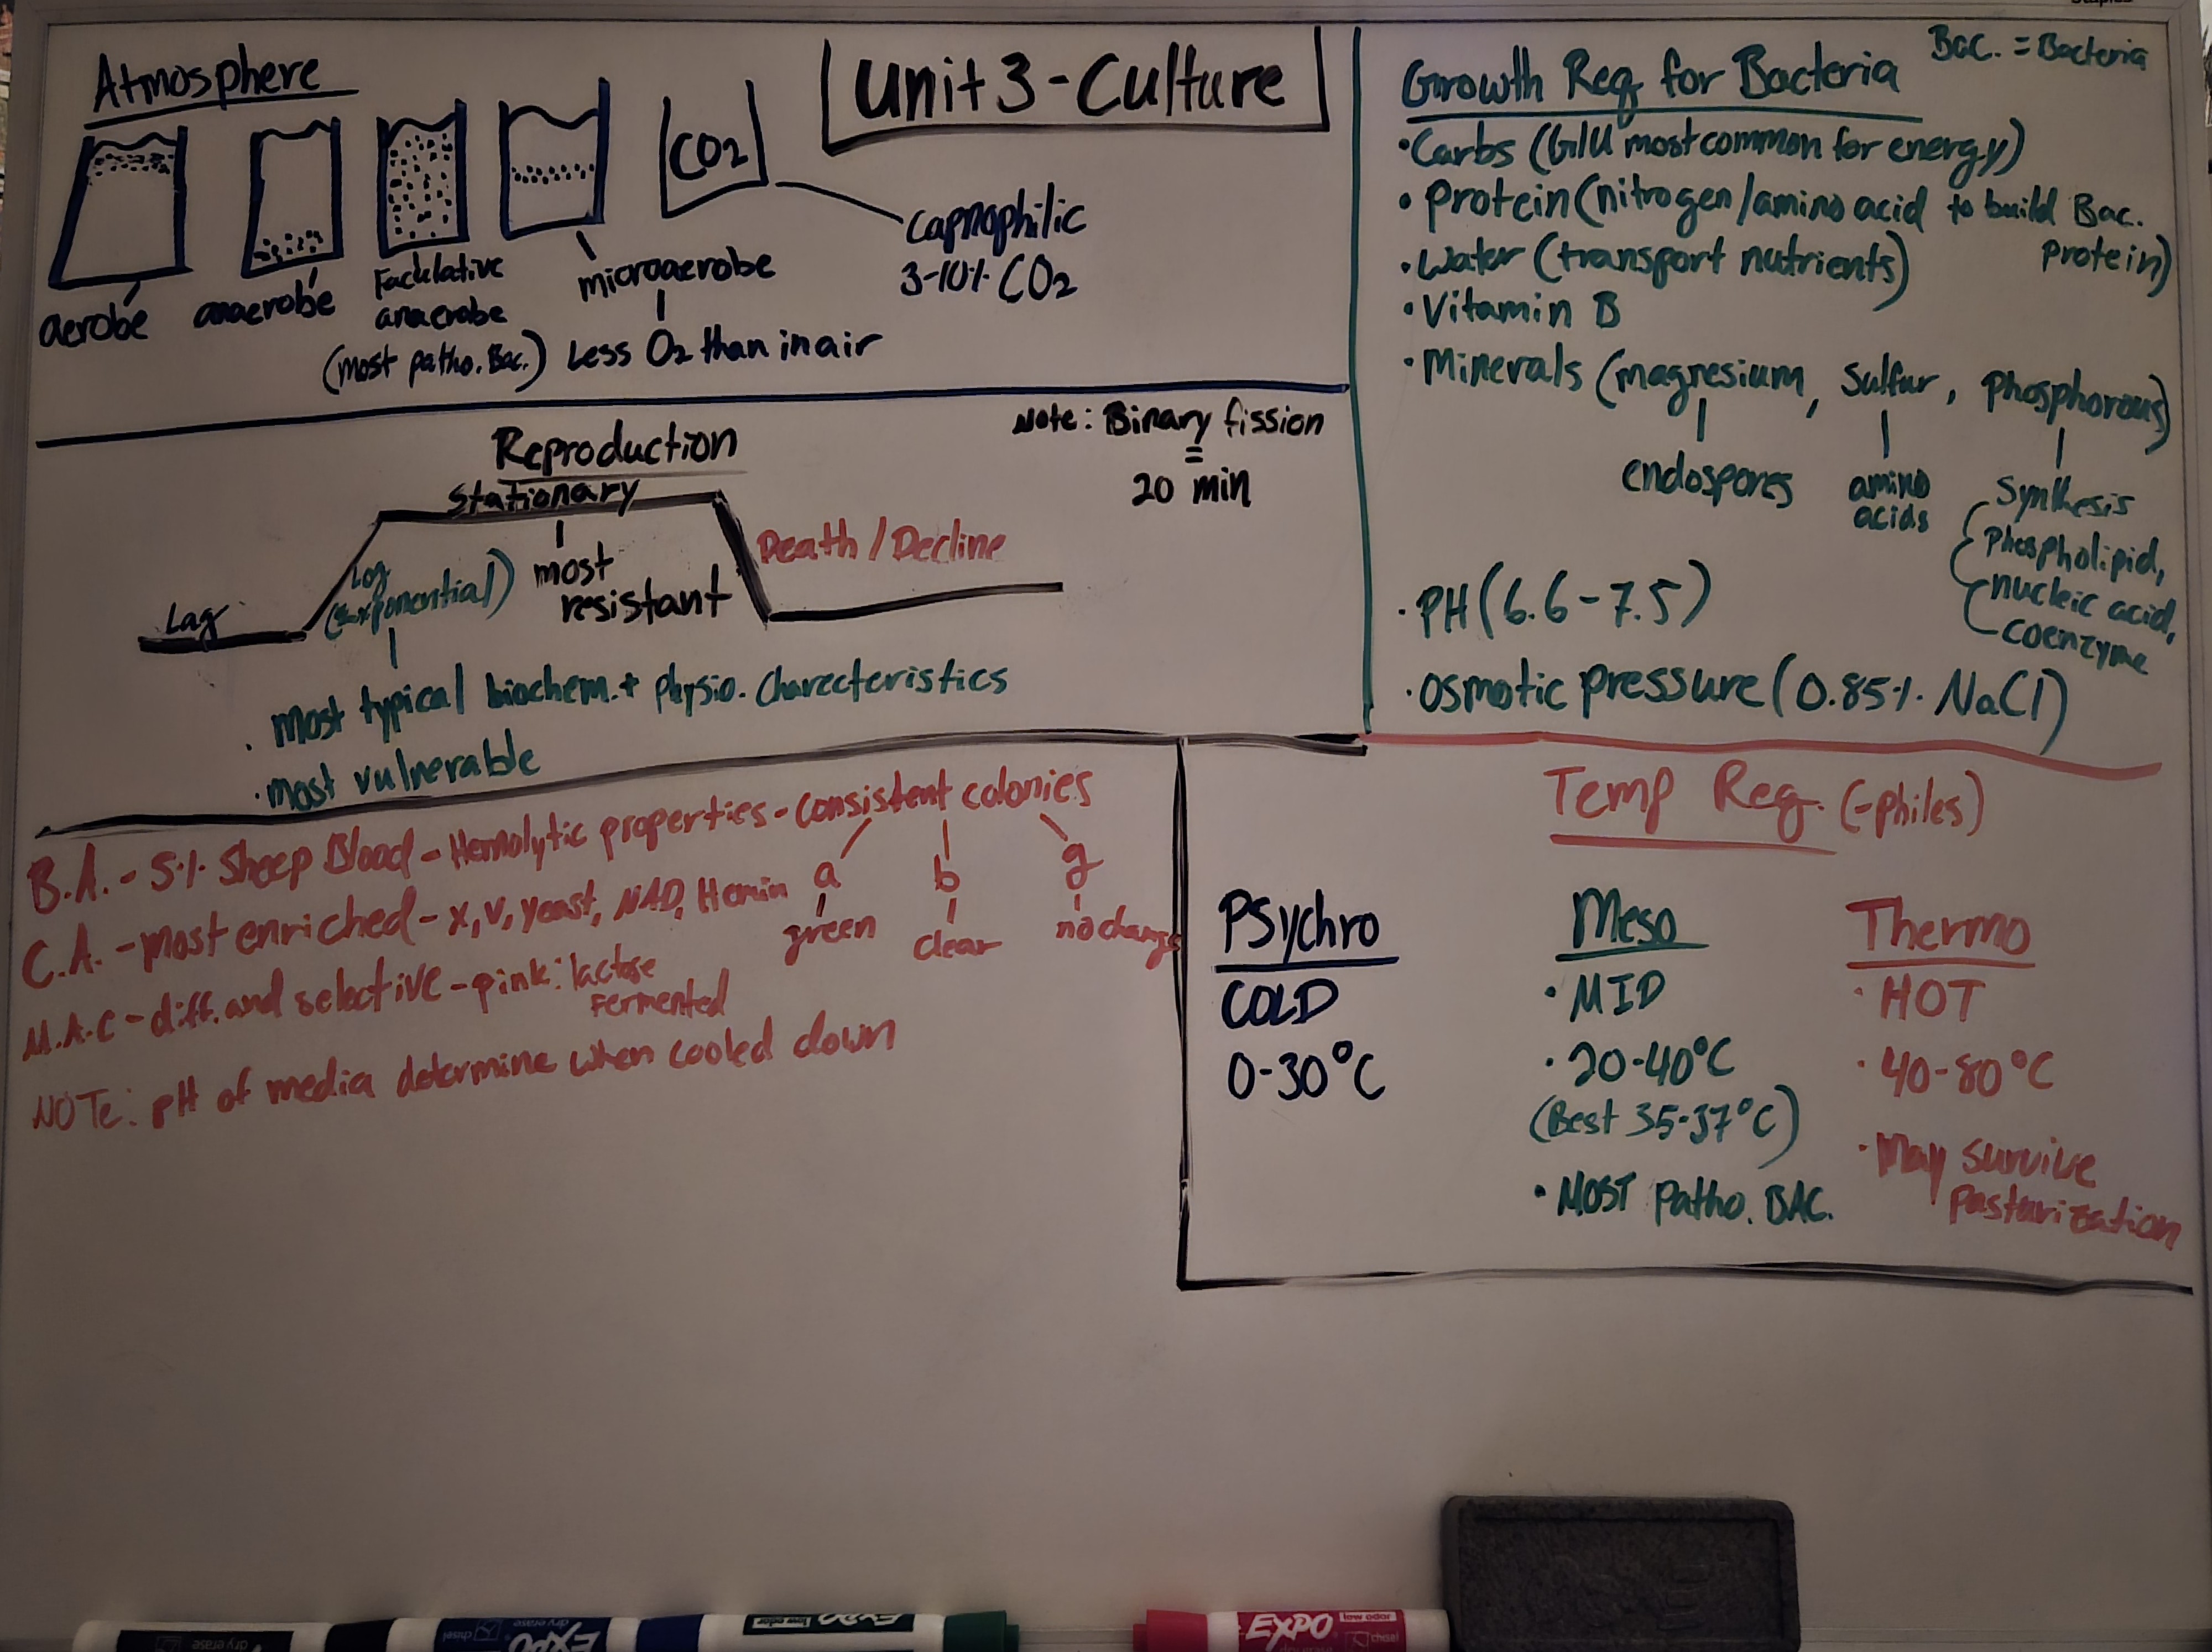 Unit 3 - Culture
Atmosphere
CO2
aerobe
anaerobe
Facklative
anaerobe
(most patho. Bac.)
microaerobe
Less O2 than in air
Capnophilic
3-10% CO2
Reproduction
Note: Binary fission
=
20 min
Lag
Log
(exponential)
Stationary
most
resistant
Death / Decline
. most typical biochem. + physio. Charecteristics
. most vulnerable
Bac. = Bacteria
Growth Req for Bacteria
• Carbs (Glu most common for energy)
• Protein (nitrogen/amino acid to build Bac.
Protein)
• Water (transport nutrients)
• Vitamin B
• Minerals (magnesium, Sulfur, Phosphorous)
endospores
amino
acids
Synthesis
Phospholipid,
nucleic acid,
coenzyme
• PH (6.6-7.5)
• Osmotic pressure (0.85% NaCl)
B.A. - 5% Sheep Blood - Hemolytic properties - consistent colonies
a b g
green clear no change
C.A. - most enriched - x, v, yeast, NAD, Hemin
M.A.C - diff. and selective - pink: lactose
Fermented
NOTe: pH of media determine when cooled down
Temp Req. (-philes)
PSychro
COLD
0-30°C
Meso
• MID
• 20-40°C
(Best 35-37°C)
• MOST Patho. BAC.
Thermo
• HOT
• 40-80°C
• May survive
Pasturization
EXPO
low odor
chisel
EXPO
dry erase
chisel
EXPO
low odor
dry erase